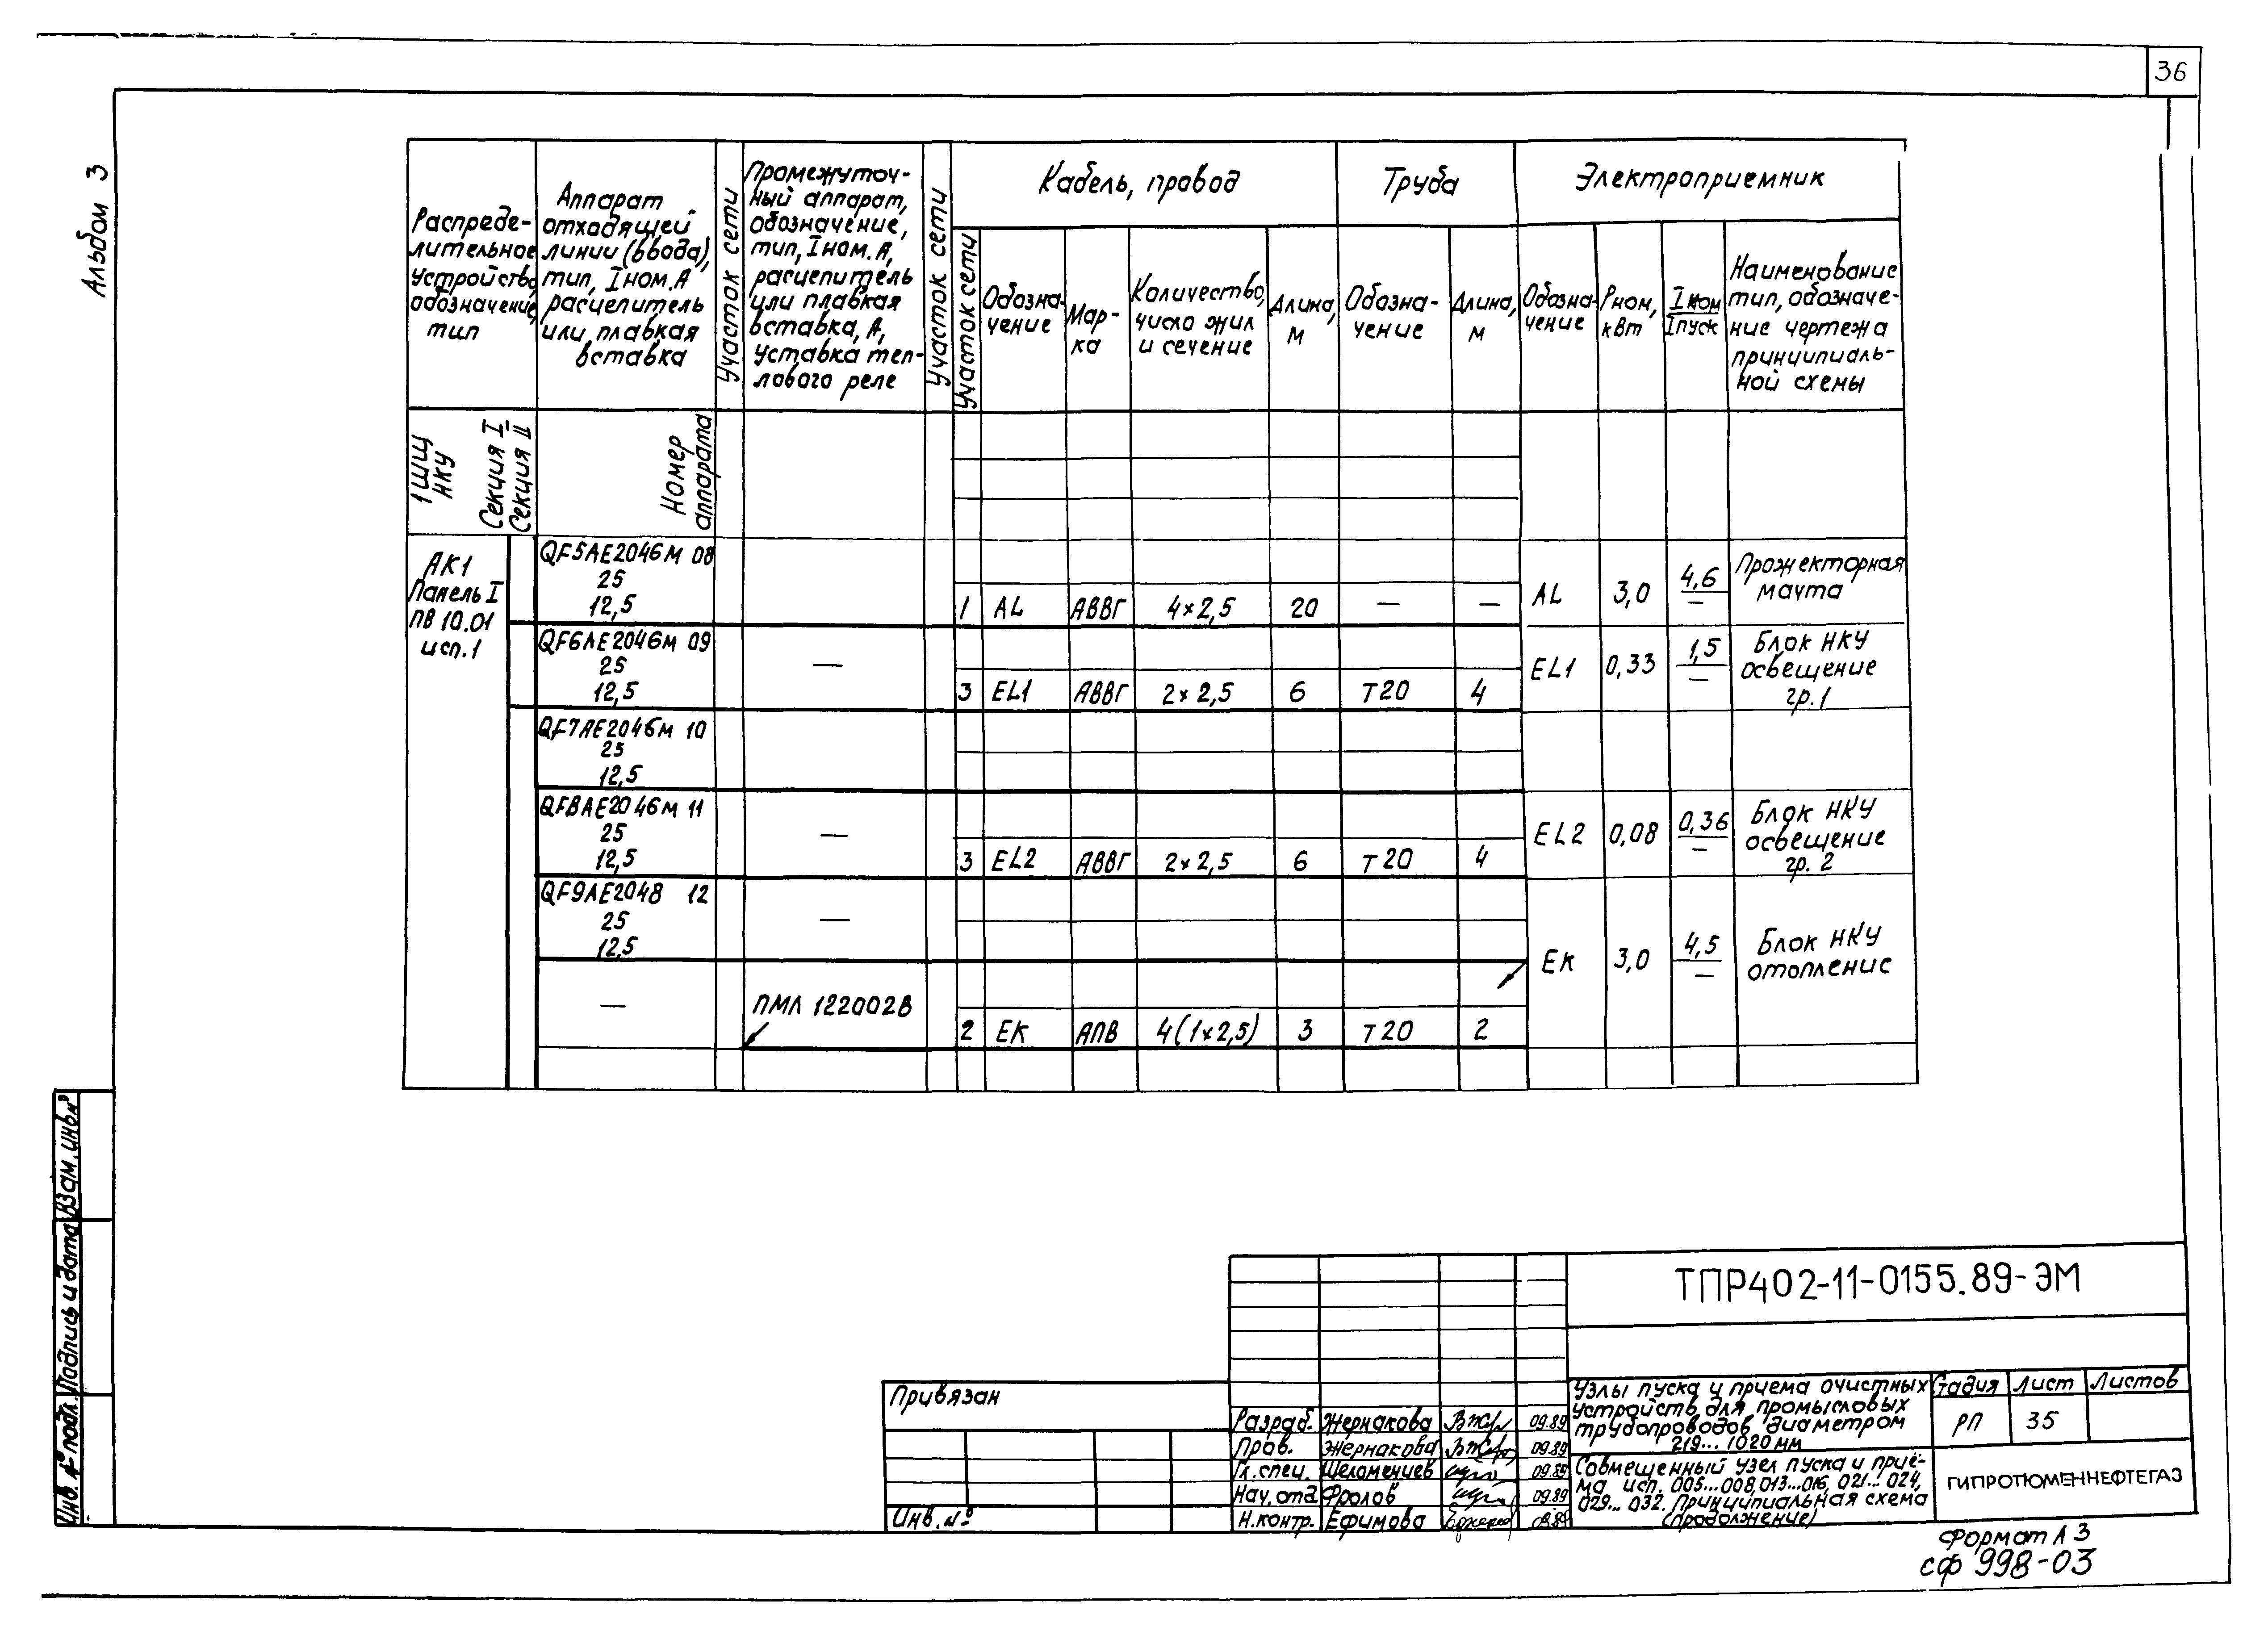 36
Альбом 3
Распреде-
лительное
устройство,
обозначение,
тип
Аппарат
отходящей
линии (ввода),
тип, Iном. А
расцепитель
или плавкая
вставка
Участок сети
Промежуточ-
ный аппарат,
обозначение,
тип, Iном. А,
расцепитель
или плавкая
вставка, А,
уставка теп-
лового реле
Участок сети
Кабель, провод
Труба
Электроприемник
Участок сети
Обозна-
чение
Мар-
ка
Количество,
число жил
и сечение
Длина,
м
Обозна-
чение
Длина,
м
Обозна-
чение
Рном,
кВт
Iном
Iпуск
Наименование
тип, обозначе-
ние чертежа
принципиаль-
ной схемы
1ШЩ
НКУ
Секция I
Секция II
Номер
аппарата
АК1
Панель I
ПВ 10.01
исп.1
QF5АЕ2046М 08
25
12,5
1 AL АВВГ 4×2,5 20 — —
AL 3,0 4,6
—
Прожекторная
мачта
QF6АЕ2046М 09
25
12,5
—
3 EL1 АВВГ 2×2,5 6 Т20 4
EL1 0,33 1,5
—
Блок НКУ
освещение
гр.1
QF7АЕ2046М 10
25
12,5
QF8АЕ2046М 11
25
12,5
—
3 EL2 АВВГ 2×2,5 6 Т20 4
EL2 0,08 0,36
—
Блок НКУ
освещение
гр. 2
QF9АЕ2048 12
25
12,5
—
—
ПМЛ 122002В
2 ЕК АПВ 4(1×2,5) 3 Т20 2
ЕК 3,0 4,5
—
Блок НКУ
отопление
Взам. инв №
Подпись и дата
Инв. № подл.
Привязан
Инв. №
Разраб. Жернакова 09.89
Пров. Жернакова 09.89
Гл. спец. Шеломенцев 09.89
Нач. отд Фролов 09.89
Н.контр. Ефимова
ТПР402-11-0155.89-ЭМ
Узлы пуска и приема очистных
устройств для промысловых
трубопроводов диаметром
219...1020 мм
Стадия Лист Листов
РП 35
Совмещенный узел пуска и приё-
ма исп. 005...008,013...016, 021...024,
029...032. Принципиальная схема
(продолжение)
ГИПРОТЮМЕННЕФТЕГАЗ
Формат А3
сф 998-03